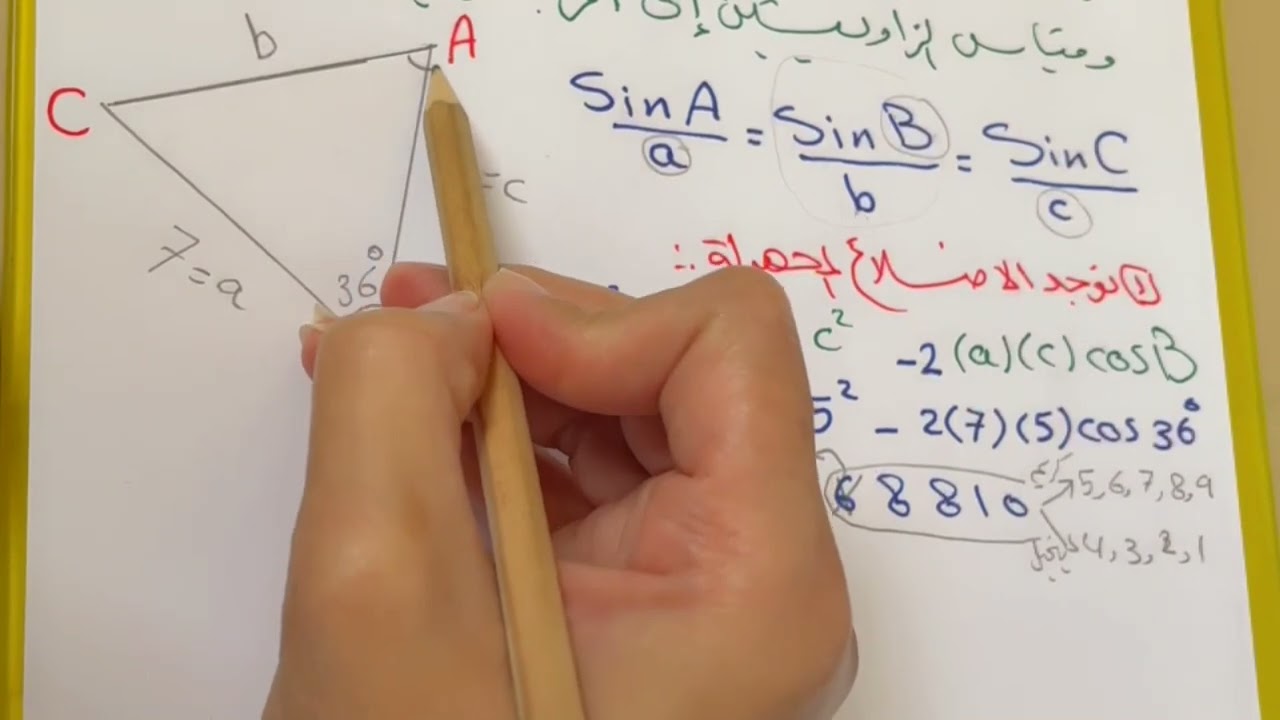 ومقياس الزاويتين إلى
b
A
C
7=a
36°
=c
SinA/a = SinB/b = SinC/c
① نوجد الاضلاع المجهولة :
c² -2(a)(c)cosB
5² - 2(7)(5)cos36°
68810
5,6,7,8,9
4,3,2,1